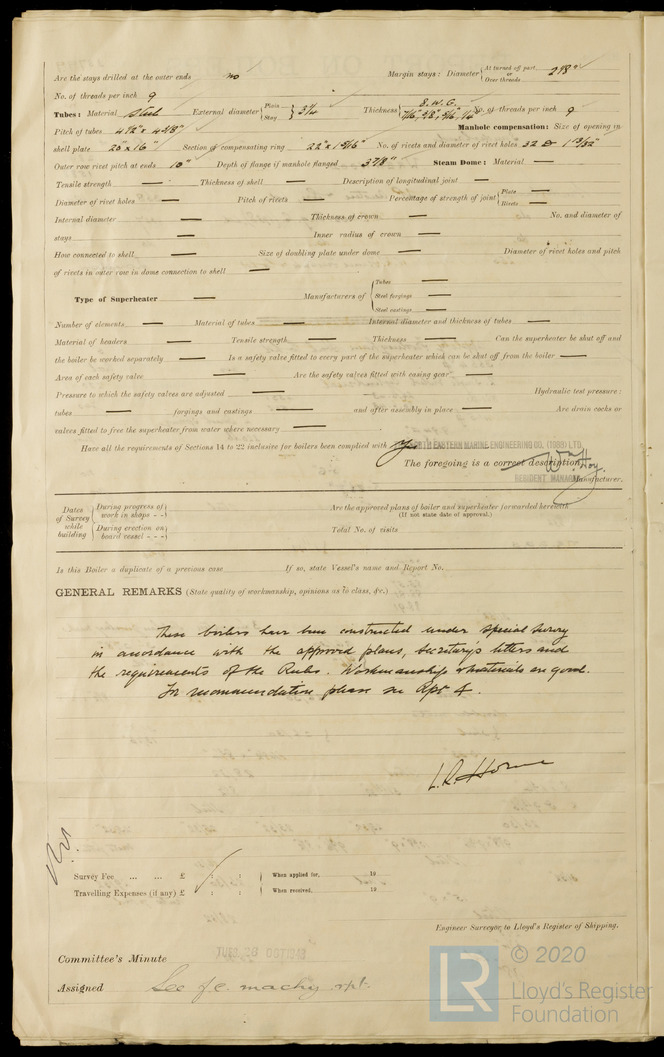 Are the stays drilled at the outer ends no Margin stays: Diameter { At turned off part, or Over threads
No. of threads per inch 9
Tubes: Material Steel External diameter { Plain Stay } 3 1/4 Thickness { 8. W. G. No. of threads per inch 9
Pitch of tubes 4 1/2" x 4 3/8" Manhole compensation: Size of opening in
shell plate 20" x 16" Section of compensating ring No. of rivets and diameter of rivet holes 32 @ 1 13/32"
Outer row rivet pitch at ends 10" Depth of flange if manhole flanged 3 7/8" Steam Dome: Material —
Tensile strength — Thickness of shell — Description of longitudinal joint —
Diameter of rivet holes — Pitch of rivets — Percentage of strength of joint { Plate — Rivets —
Internal diameter — Thickness of crown — No. and diameter of
stays — Inner radius of crown —
How connected to shell — Size of doubling plate under dome — Diameter of rivet holes and pitch
of rivets in outer row in dome connection to shell —
Type of Superheater — Manufacturers of { Tubes — Steel forgings — Steel castings —
Number of elements — Material of tubes — Internal diameter and thickness of tubes —
Material of headers — Tensile strength — Thickness — Can the superheater be shut off and
the boiler be worked separately — Is a safety valve fitted to every part of the superheater which can be shut off from the boiler —
Area of each safety valve — Are the safety valves fitted with easing gear —
Pressure to which the safety valves are adjusted — Hydraulic test pressure:
tubes — forgings and castings — and after assembly in place — Are drain cocks or
valves fitted to free the superheater from water where necessary —
Have all the requirements of Sections 14 to 22 inclusive for boilers been complied with Yes
NORTH EASTERN MARINE ENGINEERING CO. (1938) LTD.
The foregoing is a correct description,
Wm Hoy.
RESIDENT MANAGER Manufacturer.
Dates of Survey while building { During progress of work in shops - - { During erection on board vessel - - -
Are the approved plans of boiler and superheater forwarded herewith
(If not state date of approval.)
Total No. of visits
Is this Boiler a duplicate of a previous case If so, state Vessel's name and Report No.
GENERAL REMARKS (State quality of workmanship, opinions as to class, &c.)
These boilers have been constructed under special survey
in accordance with the approved plans, secretarys letters and
the requirements of the Rules. Workmanship & materials are good.
For recommendation please see Rpt 4.
L. R. Horne
Survey Fee ... ... £ : : When applied for, 19
Travelling Expenses (if any) £ : : When received, 19
Engineer Surveyor to Lloyd's Register of Shipping.
Committee's Minute TUES 26 OCT 1943
Assigned See f.e. machy rpt.
LR © 2020
Lloyd's Register
Foundation